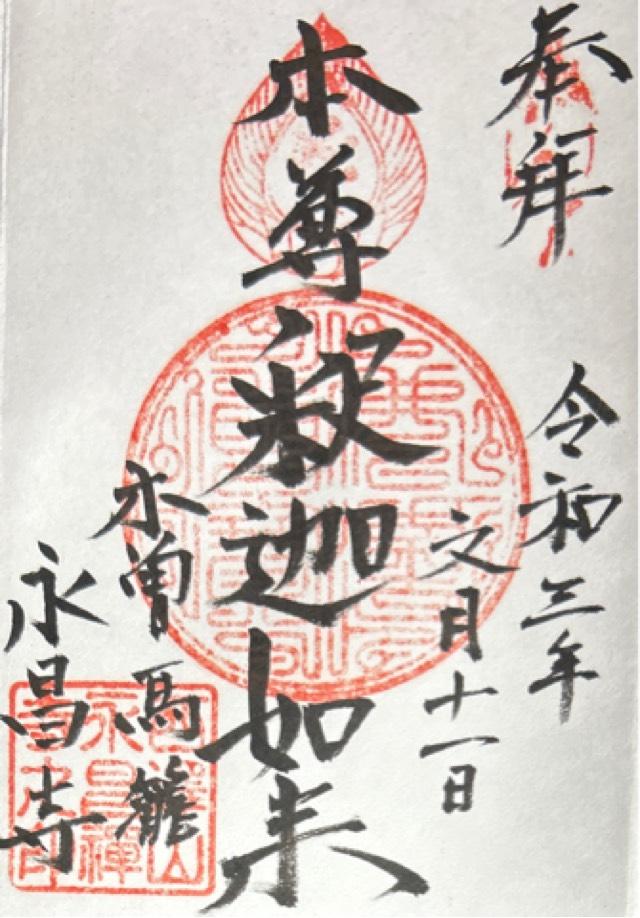 奉拜
令和三年
文月十一日
本尊釈迦如来
木曽馬籠
永昌寺